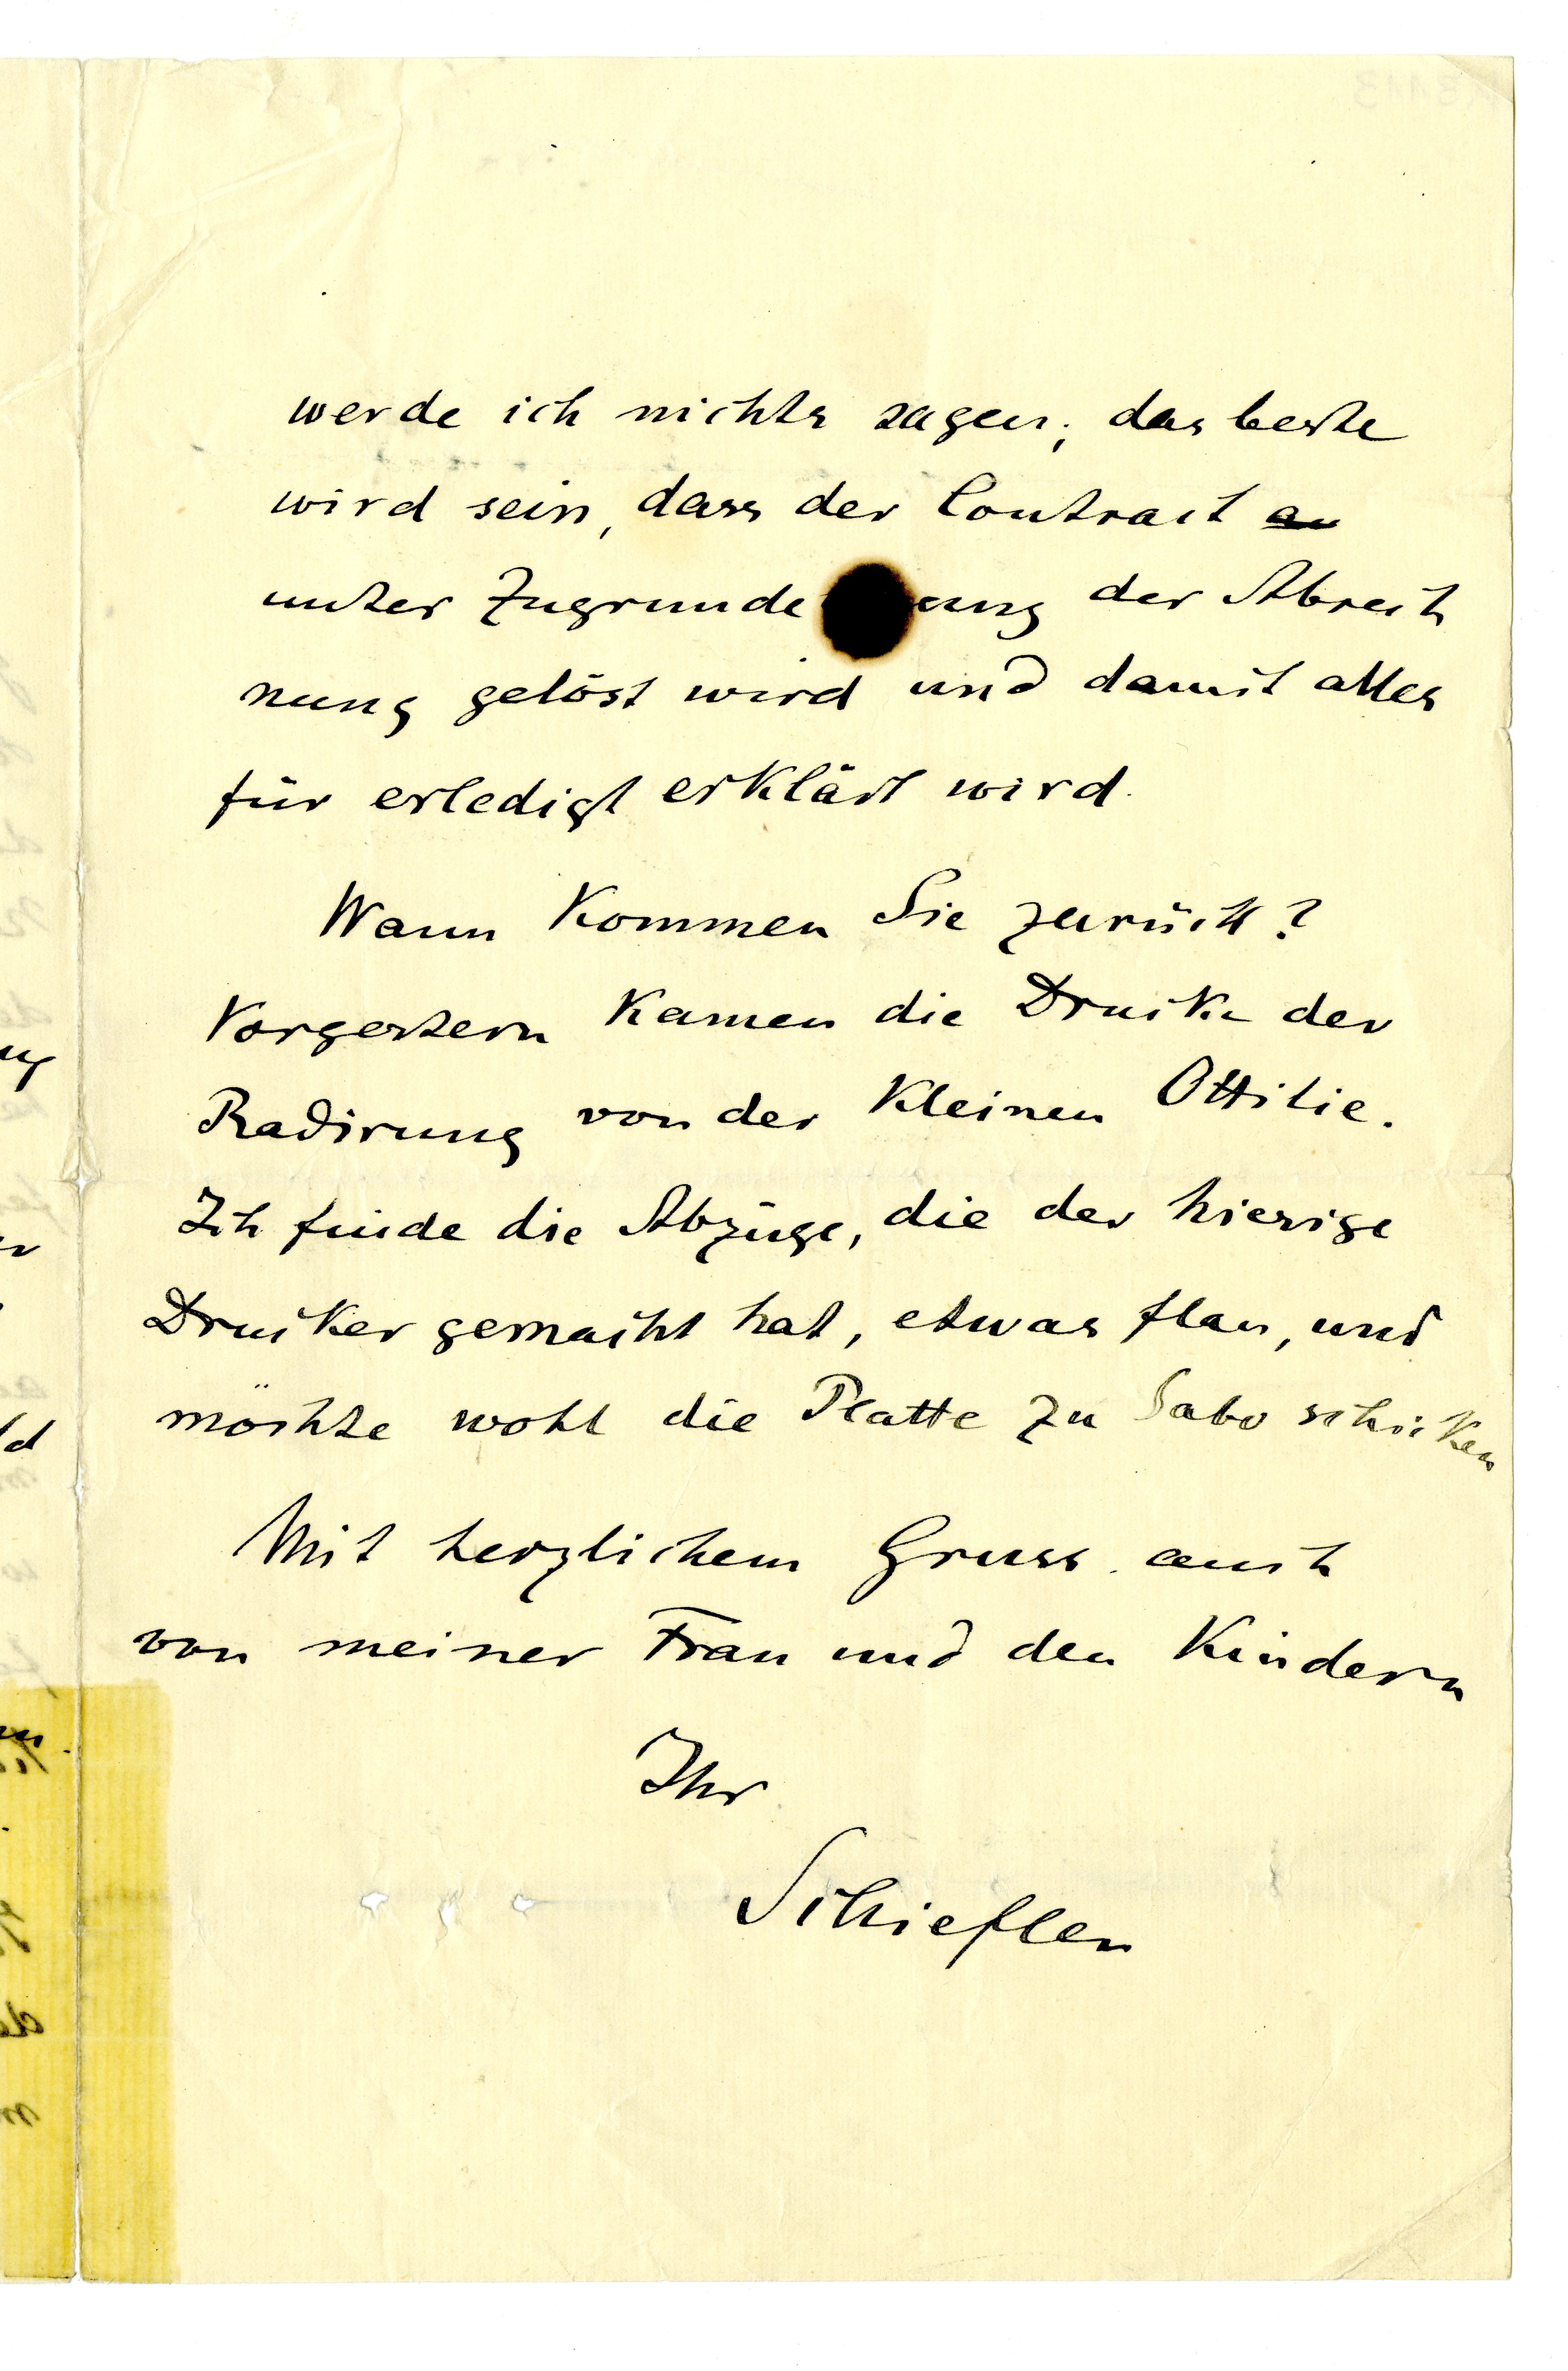 werde ich nichts sagen; das beste
wird sein, dass der Contract an
unter Zugrunde ung der Abrech
nung gelöst wird und damit alles
für erledigt erklärt wird.
Wann kommen Sie zurück?
Vorgestern kamen die Drucke der
Radirung von der kleinen Ottilie.
Ich finde die Abzüge, die der hiesige
Drucker gemacht hat, etwas flau, und
möchte wohl die Platte zu Sabo schicken
Mit herzlichem Gruss auch
von meiner Frau und den Kindern
Ihr
Schiefler